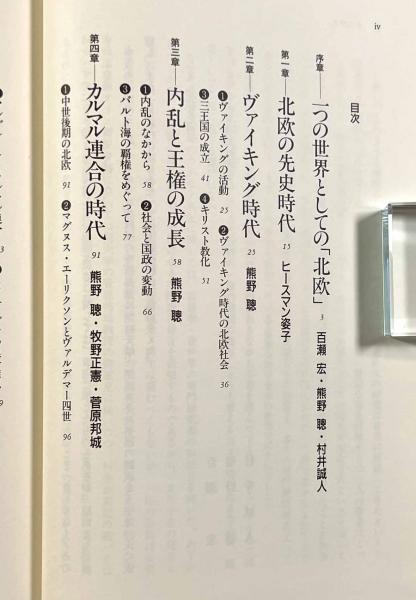 iv
目次
序章――一つの世界としての「北欧」 3 百瀬 宏・熊野 聰・村井誠人
第一章――北欧の先史時代 15 ヒースマン姿子
第二章――ヴァイキング時代 25 熊野 聰
❶ヴァイキングの活動 25 ❷ヴァイキング時代の北欧社会 36
❸三王国の成立 41 ❹キリスト教化 51
第三章――内乱と王権の成長 58 熊野 聰
❶内乱のなかから 58 ❷社会と国政の変動 66
❸バルト海の覇権をめぐって 77
第四章――カルマル連合の時代 91 熊野 聰・牧野正憲・菅原邦城
❶中世後期の北欧 91 ❷マグヌス・エーリクソンとヴァルデマー四世 96